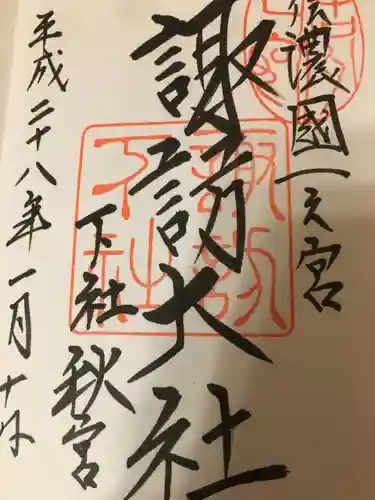 信濃國一之宮
諏訪大社
下社秋宮
平成二十八年一月十
諏訪
下社